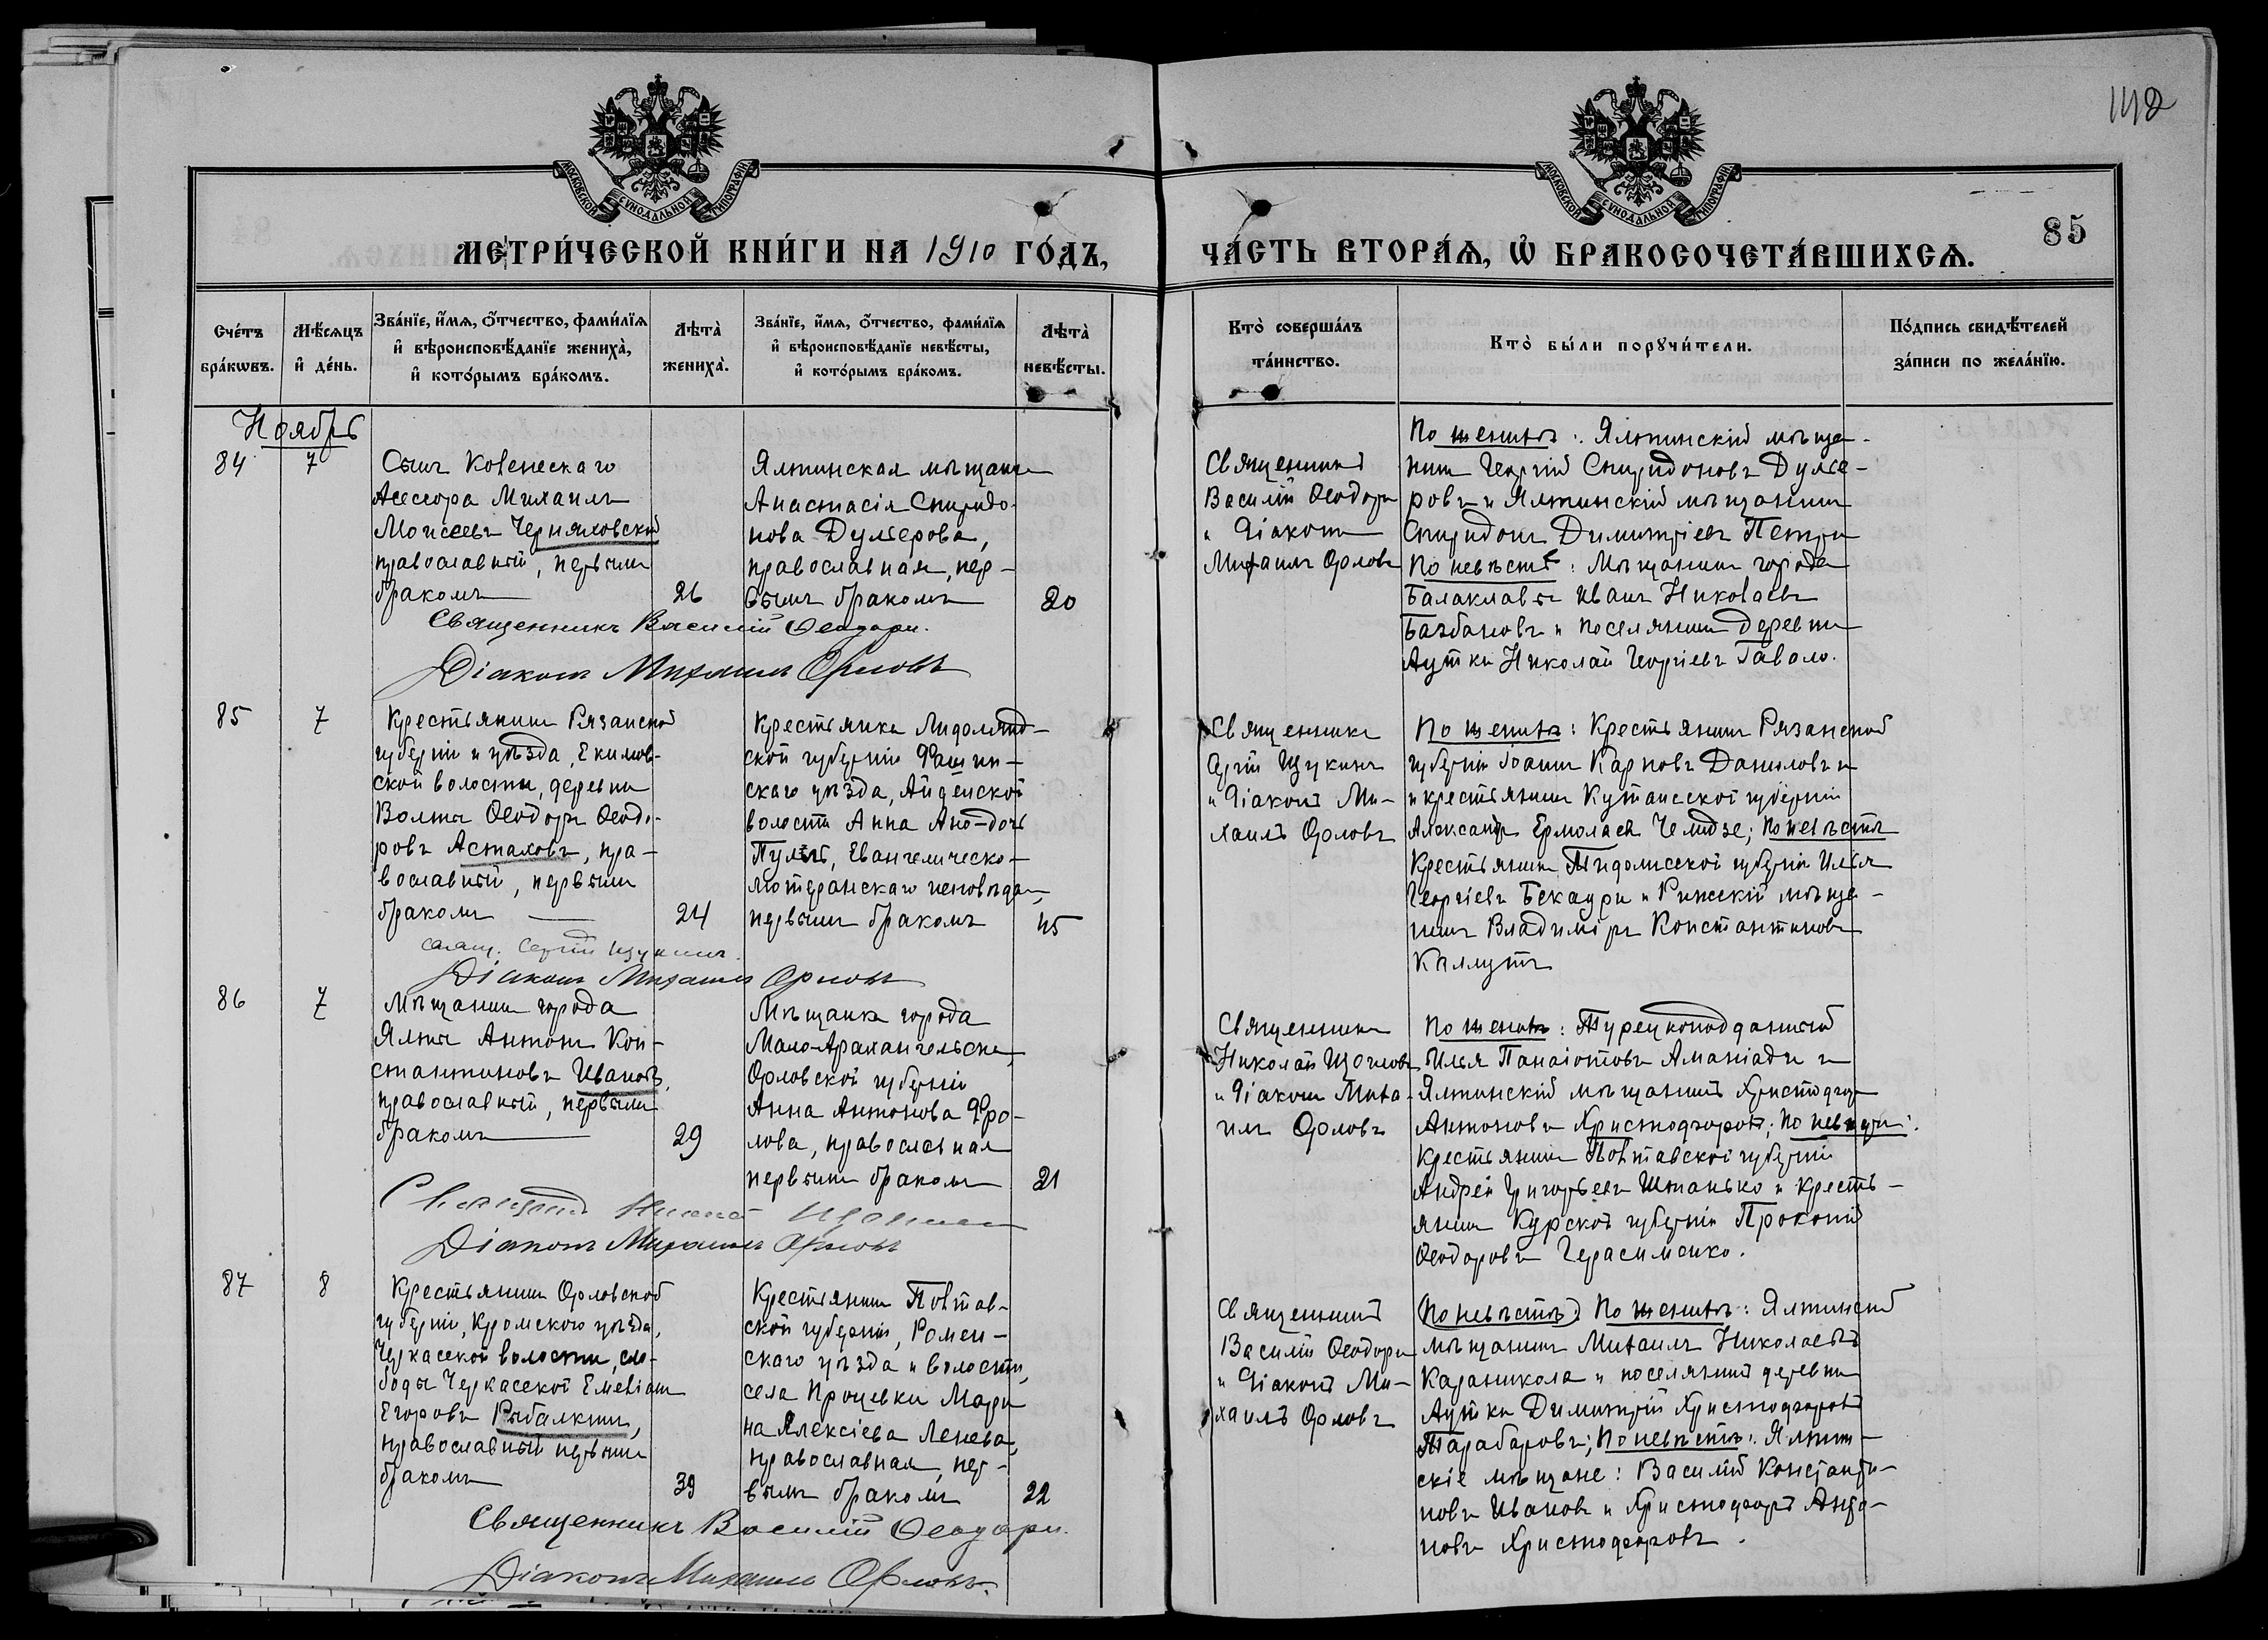 142
МОСКОВСКОЙ СУНОДАЛЬНОЙ ТИПОГРАФІИ
МОСКОВСКОЙ СУНОДАЛЬНОЙ ТИПОГРАФІИ
85
МЕТРИ́ЧЕСКОЙ КНИ́ГИ НА 1910 ГО́ДЪ,
ЧА́СТЬ ВТОРА́Ѧ, Ѡ҆ БРАКОСОЧЕТА́ВШИХСѦ.
Сче́тъ
бра́кѡвъ.
Мѣ́сѧцъ
и҆ де́нь.
Зва́нїе, и҆́мѧ, о҆́тчество, фами́лїѧ
и҆ вѣроисповѣ́данїе жениха̀,
и҆ кото́рымъ бра́комъ.
Лѣта̀
жениха̀.
Зва́нїе, и҆́мѧ, о҆́тчество, фами́лїѧ
и҆ вѣроисповѣ́данїе невѣ́сты,
и҆ кото́рымъ бра́комъ.
Лѣта̀
невѣ́сты.
Кто̀ соверша́лъ
та́инство.
Кто̀ бы́ли порꙋчи́тели.
По́дпись свидѣ́телей
за́писи по жела́нїю.
Ноябрь
84
7
Сынъ Колежскаго
Асессора Михаилъ
Моисеевъ Черняховскій
православный, первымъ
бракомъ
26
Ялтинская мѣщанка
Анастасія Спиридо-
нова Дулжерова,
православная, пер-
вымъ бракомъ
20
Священникъ
Василій Ѳеодори
и Діаконъ
Михаилъ Орловъ
По женихѣ: Ялтинскій мѣща-
нинъ Георгій Спиридоновъ Дулже-
ровъ и Ялтинскій мѣщанинъ
Спиридонъ Димитріевъ Петри
По невѣстѣ: Мѣщанинъ города
Балаклавы Иванъ Николаевъ
и поселянинъ деревни
Аутки Николай Георгіевъ Гавало.
Священникъ Василій Ѳеодори.
Діаконъ Михаилъ Орловъ
85
7
Крестьянинъ Рязанской
губерніи и уѣзда, Екимов-
ской волости, деревни
Волты Ѳеодоръ Ѳеодо-
ровъ Астаховъ, пра-
вославный, первымъ
бракомъ
24
Крестьянка Лифлянд-
ской губерніи
скаго уѣзда,
волости Анна Яно-дочь
Евангелическо-
лютеранскаго исповѣдан.,
первымъ бракомъ
45
Священникъ
Сергій Щукинъ
и Діаконъ Ми-
хаилъ Орловъ
По женихѣ: Крестьянинъ Рязанской
губерніи Іоаннъ Карповъ Даниловъ и
крестьянинъ Кутаисской губерніи
Александръ Ермолаевъ Челидзе; По невѣстѣ
Крестьянинъ Тифлисской губерніи Илья
Георгіевъ Бекаури и Рижскій мѣща-
нинъ Владиміръ Константиновъ
свящ. Сергій Щукинъ.
Діаконъ Михаилъ Орловъ
86
7
Мѣщанинъ города
Ялты Антонъ Кон-
стантиновъ Ивановъ,
православный, первымъ
бракомъ
29
Мѣщанка города
Мало-Архангельска,
Орловской губерніи
Анна Антонова Фро-
лова, православная
первымъ бракомъ
21
Священникъ
Николай Щегловъ
и Діаконъ Миха-
илъ Орловъ
По женихѣ: Турецкоподданный
Илья Панаіотовъ Аманіади и
Ялтинскій мѣщанинъ Христофоръ
Антоновъ Христофоровъ; По невѣстѣ:
Крестьянинъ Полтавской губерніи
Андрей Григорьевъ Штанько и кресть-
янинъ Курской губерніи Прокопій
Ѳеодоровъ Герасименко.
Священникъ Николай Щегловъ
Діаконъ Михаилъ Орловъ
87
8
Крестьянинъ Орловской
губерніи, Кромского уѣзда,
Черкасской волости, сло-
боды Черкасской Емеліанъ
Егоровъ Рыбалкинъ,
православный первымъ
бракомъ
39
Крестьянка Полтав-
ской губерніи, Ромен-
скаго уѣзда и волости,
села Процевки Мари-
на Алексіева Ленева,
православная, пер-
вымъ бракомъ
22
Священникъ
Василій Ѳеодори
и Діаконъ Ми-
хаилъ Орловъ
(По невѣстѣ) По женихѣ: Ялтинскій
мѣщанинъ Михаилъ Николаевъ
Караникола и поселянинъ деревни
Аутки Димитрій Христофоровъ
Тарабаровъ; По невѣстѣ: Ялтин-
скіе мѣщане: Василій Константи-
новъ Ивановъ и Христофоръ Анто-
новъ Христофоровъ.
Священникъ Василій Ѳеодори.
Діаконъ Михаилъ Орловъ.